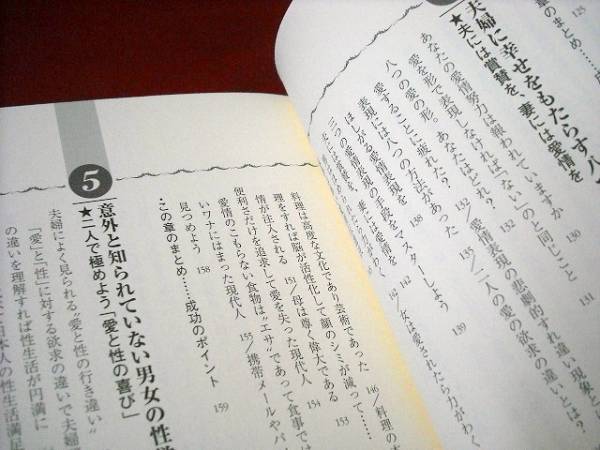 125
のまとめ……成
夫婦に幸せをもたらす八
★夫には賞賛を、妻には愛情を
あなたの愛情努力は報われていますか 130
愛を形で表現しなければ“ない”のと同じこと 131
八つの愛の形。あなたはどれ？ 132／愛情表現の悲劇的すれ違い現象と
愛することに疲れた？ 137／二人の愛の欲求の違いとは？
表現には八つの方法があった 139
愛情表現をマスターしよう 142
ほしがる愛情表現の手段
／女は愛されたら力がわく
料理は高度な文化であり芸術であった 146／料理の
理をすれば脳が活性化して顔のシミが減って……
情が注入される 151／母は尊く偉大である 153
便利さだけを追求して愛を失った現代人 154
愛情のこもらない食物は“エサ”であって食事では
いワナにはまった現代人 155／携帯メールやパ
見つめよう 158
この章のまとめ……成功のポイント 159
5
意外と知られていない男女の性
★二人で極めよう「愛と性の喜び」
夫婦によく見られる“愛と性の行き違い”
「愛」と「性」に対する欲求の違いで夫婦
の違いを理解すれば性生活が円満に
本人の性生活満足